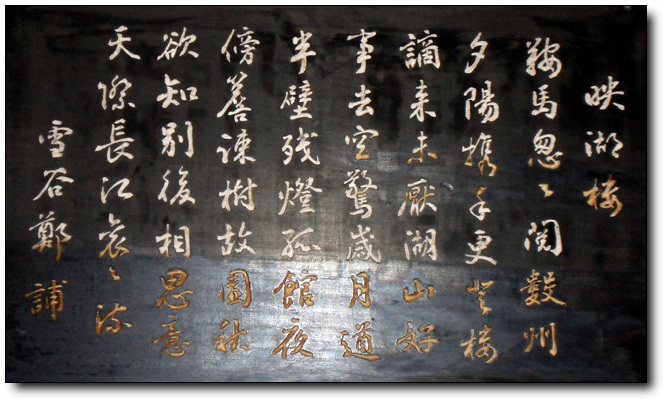 映湖楼
鞍馬怱〻閱數州
夕陽携手更登楼
謫来未厭湖山好
事去空驚歲月遒
半壁残燈孤館夜
傍簷疎樹故園秋
欲知別後相思意
天際長江衮〻流
雪谷鄭誧